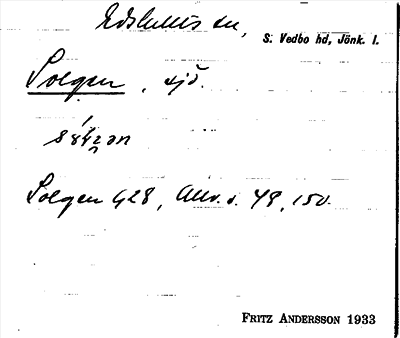 Edshults sn,
S. Vedbo hd, Jönk. l.
Solgen, sjö.
Solgen G28, Allv. s. 48, 150.
FRITZ ANDERSSON 1933